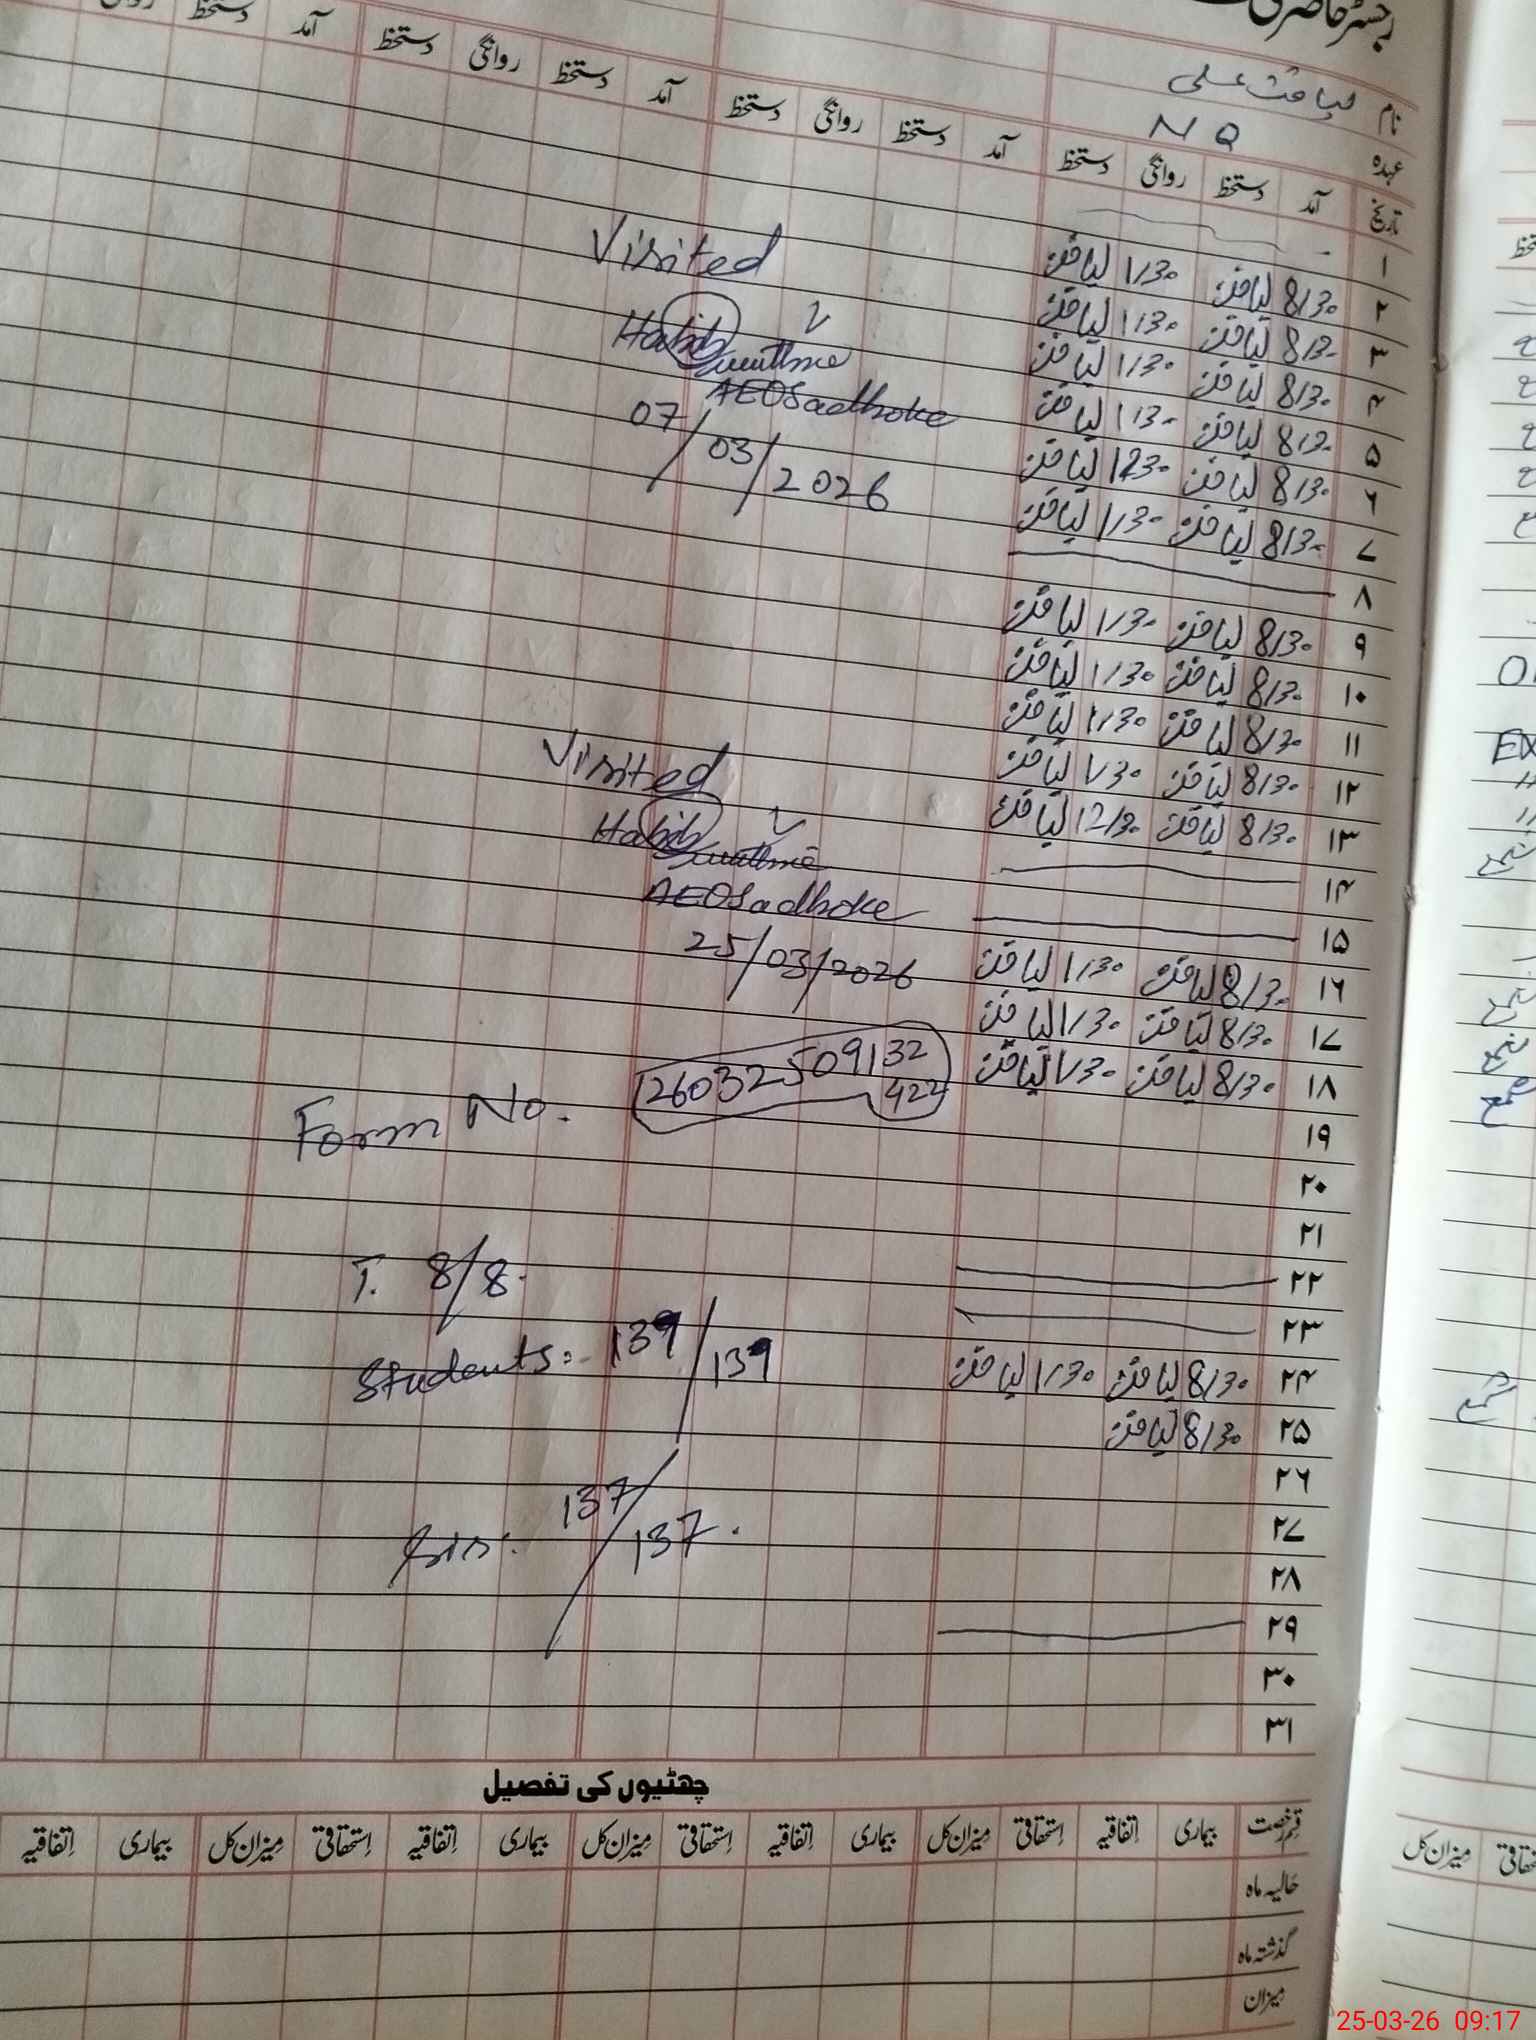 رجسٹر حاضری
نام لیاقت علی
عہدہ N Q
تاریخ آمد دستخط روانگی دستخط آمد دستخط روانگی دستخط آمد دستخط روانگی دستخط آمد دستخط روانگی
۱
۲ 8/30 لیاقت 1/30 لیاقت
۳ 8/30 لیاقت 1/30 لیاقت
۴ 8/30 لیاقت 1/30 لیاقت
۵ 8/30 لیاقت 1/30 لیاقت
۶ 8/30 لیاقت 1230 لیاقت
۷ 8/30 لیاقت 1/30 لیاقت
۸
۹ 8/30 لیاقت 1/30 لیاقت
۱۰ 8/30 لیاقت 1/30 لیاقت
۱۱ 8/30 لیاقت 1/30 لیاقت
۱۲ 8/30 لیاقت 1/30 لیاقت
۱۳ 8/30 لیاقت 12/30 لیاقت
۱۴
۱۵
۱۶ 8/30 لیاقت 1/30 لیاقت
۱۷ 8/30 لیاقت 1/30 لیاقت
۱۸ 8/30 لیاقت 1/30 لیاقت
۱۹
۲۰
۲۱
۲۲
۲۳
۲۴ 8/30 لیاقت 1/30 لیاقت
۲۵ 8/30 لیاقت
۲۶
۲۷
۲۸
۲۹
۳۰
۳۱
Visited
Habib
AEO Sadhoke
07/03/2026
Visited
Habib
AEO Sadhoke
25/03/2026
Form No. 26032509132
422
T. 8/8.
Students: 139/139
Sis: 137/137.
چھٹیوں کی تفصیل
قسم رخصت بیماری اتفاقیہ استحقاقی میزان کل بیماری اتفاقیہ استحقاقی میزان کل بیماری اتفاقیہ استحقاقی میزان کل بیماری اتفاقیہ
حالیہ ماہ
گذشتہ ماہ
میزان
میزان کل
25-03-26 09:17